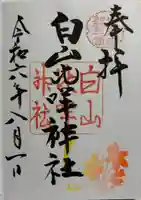 奉拝
白山比咩神社
白山
神社
令和六年八月一日